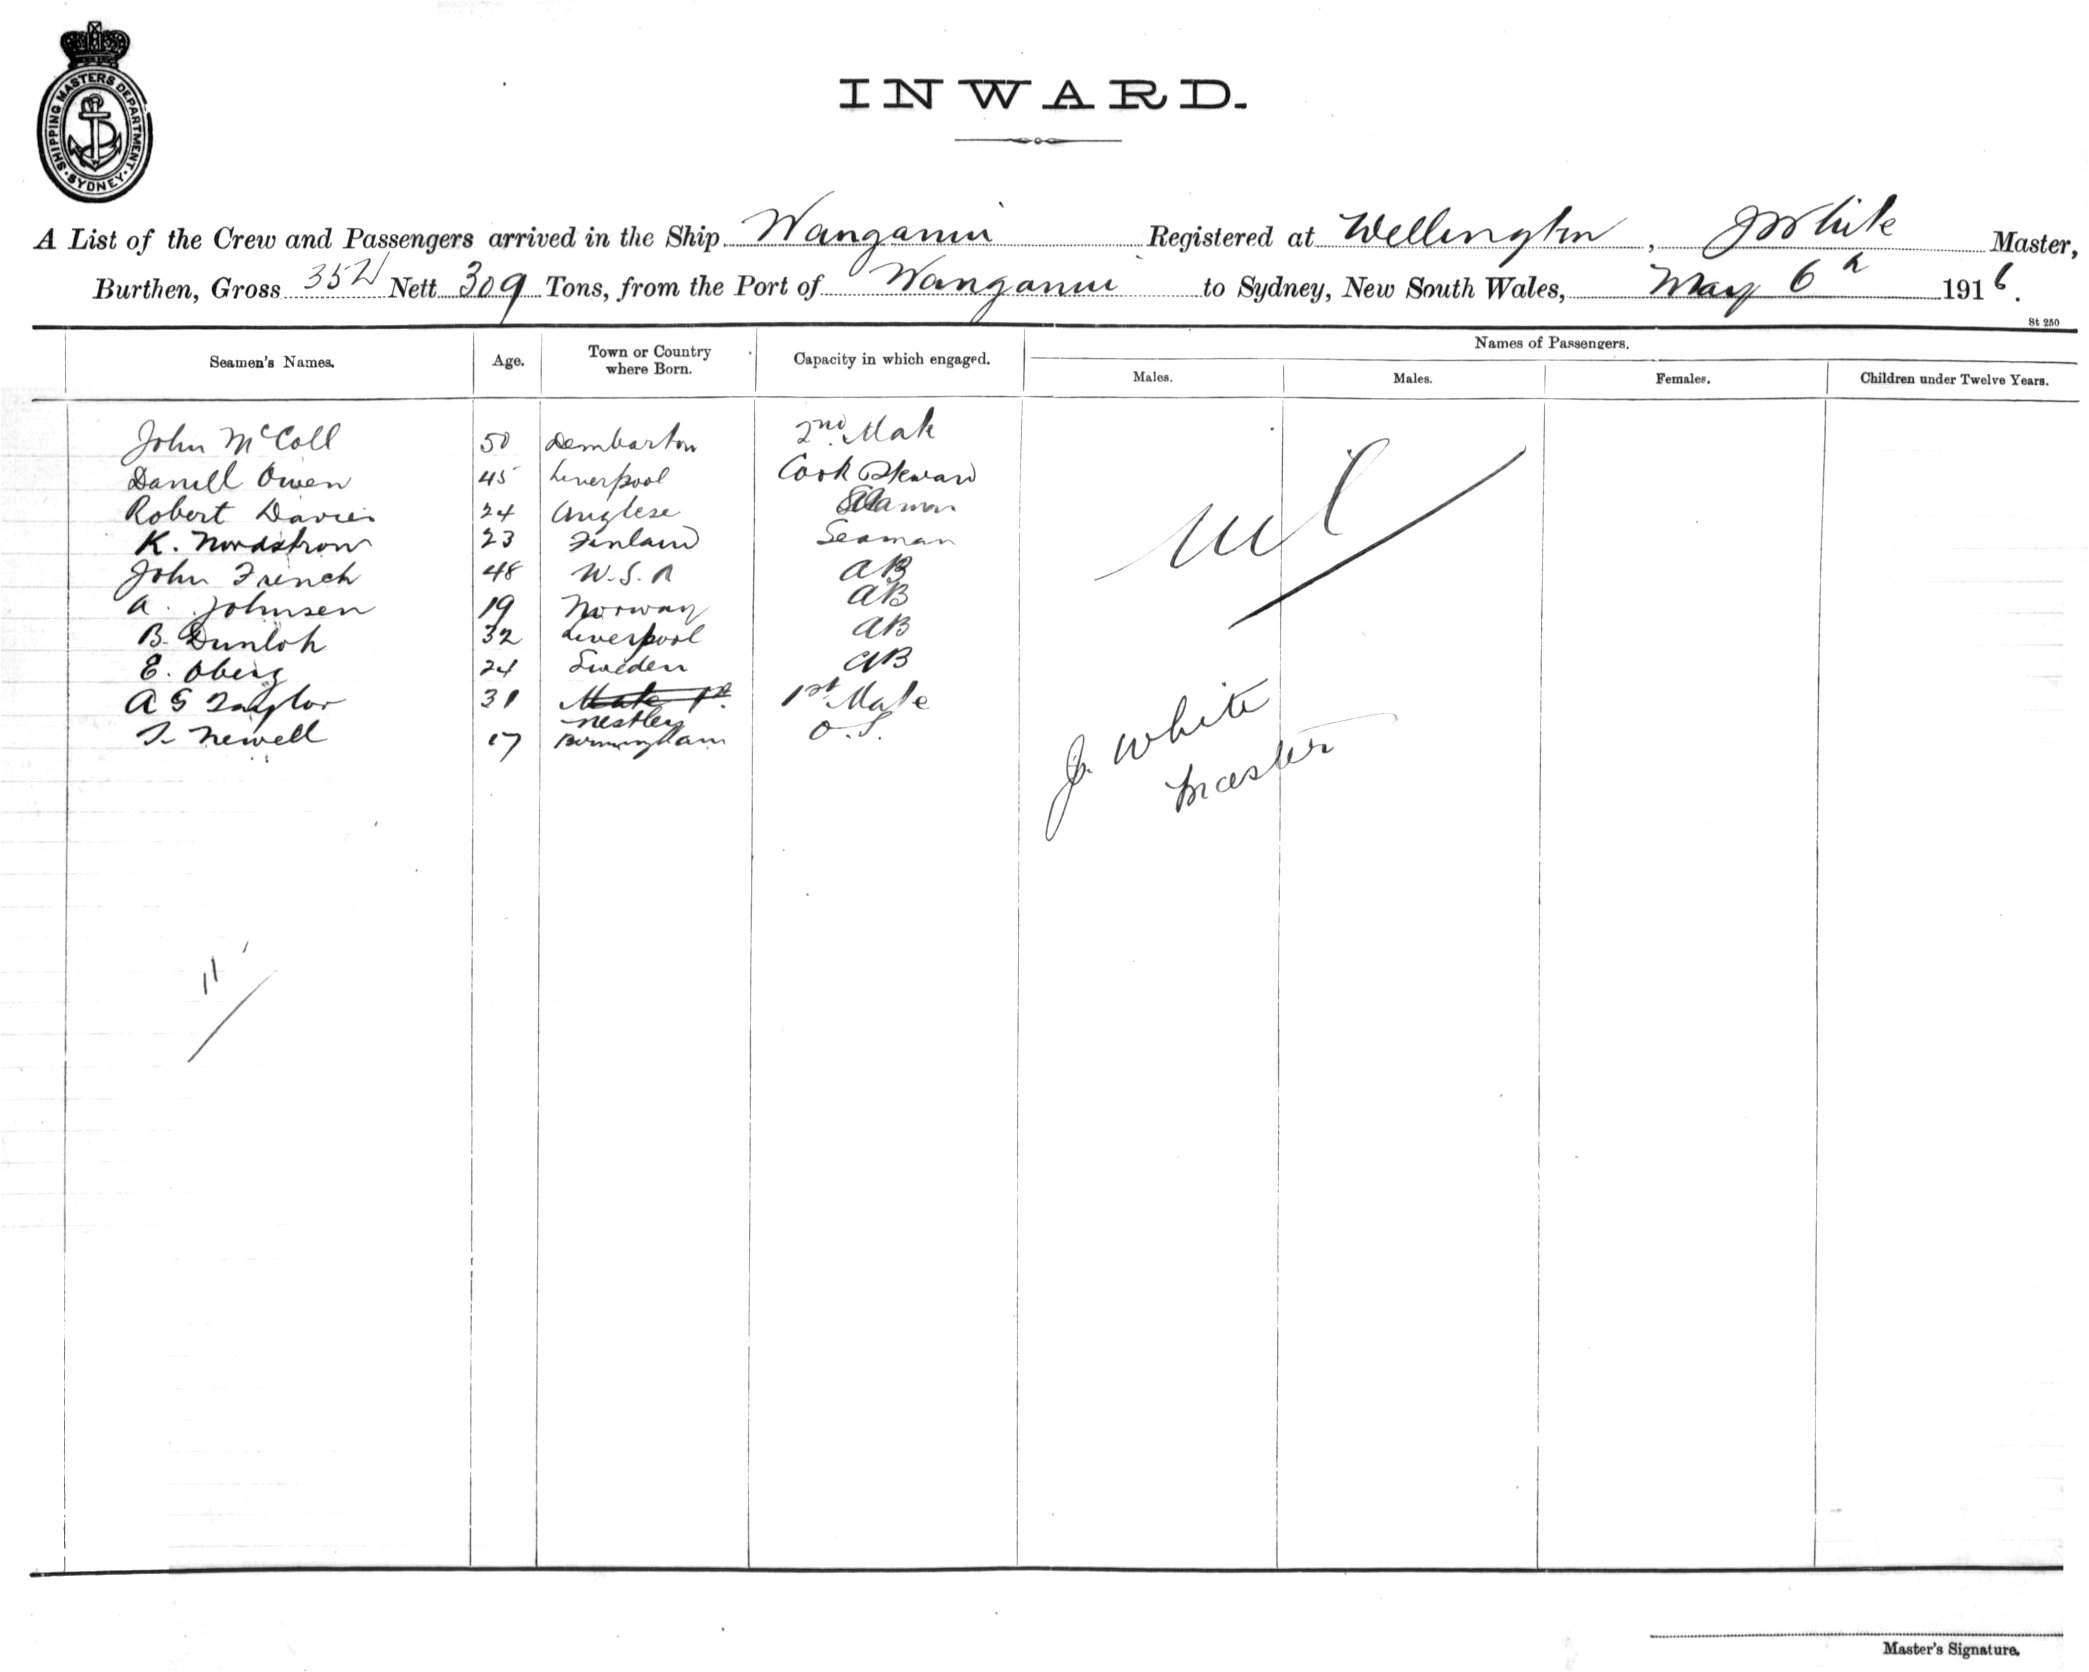 SHIPPING MASTERS DEPARTMENT SYDNEY
INWARD.
A List of the Crew and Passengers arrived in the Ship Wanganui Registered at Wellington, J White Master,
Burthen, Gross 352 Nett 309 Tons, from the Port of Wanganui to Sydney, New South Wales, May 6th 1916.
St 250
Seamen's Names. Age. Town or Country where Born. Capacity in which engaged. Names of Passengers.
Males. Males. Females. Children under Twelve Years.
John McColl 50 Dembarton 2nd Mate
Daniell Owen 45 Liverpool Cook Steward
Robert Davies 24 Anglese Seaman
K. Nordstrom 23 Finland Seaman
John French 48 U.S.A AB
A. Johnsen 19 Norway AB
B. Dunloh 32 Liverpool AB
E. Oberg 24 Sweden AB
A G Taylor 31 Mate 1st Nestley 1st Mate
T. Newell 17 Birmingham O.S.
Nil
J. White
Master
11
Master's Signature.